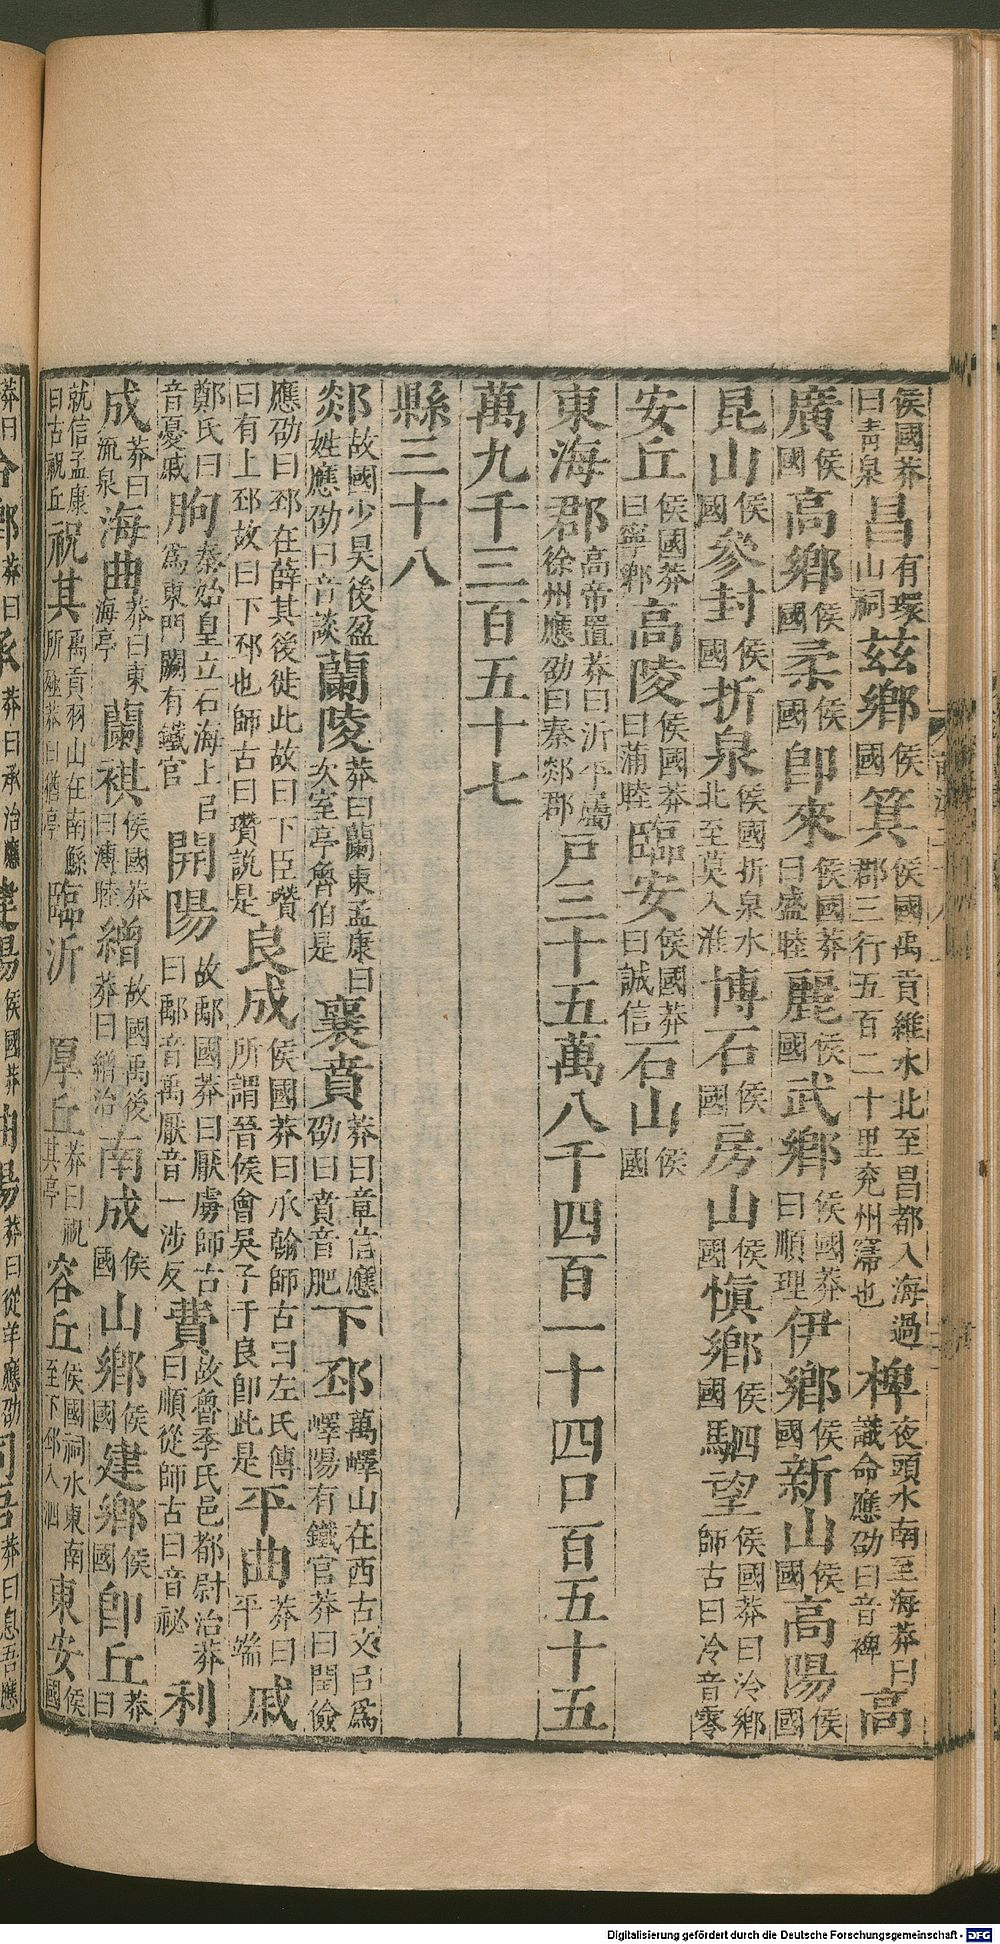 侯國莽曰青泉昌有環山祠茲鄉侯國箕侯國禹貢維水北至昌都入海過郡三行五百二十里兖州濅也椑夜頭水南至海莽曰識命應劭曰音裨高
廣侯國高鄉侯國柔侯國卽來侯國莽曰盛睦麗侯國武鄉侯國莽曰順理伊鄉侯國新山侯國高陽侯國
昆山侯國參封侯國折泉侯國折泉水北至莫入淮博石侯國房山侯國愼鄉侯國駟望侯國莽曰泠鄉師古曰冷音零
安丘侯國莽曰寧鄉高陵侯國莽曰蒲睦臨安侯國莽曰誠信石山侯國
東海郡高帝置莽曰沂平屬徐州應劭曰秦郯郡戸三十五萬八千四百一十四口百五十五
萬九千三百五十七
縣三十八
郯故國少昊後盈姓應劭曰音談蘭陵莽曰蘭東孟康曰次室亭魯伯是襄賁莽曰章信應劭曰賁音肥下邳葛嶧山在西古文㠯爲嶧陽有鐵官莽曰閏儉
應劭曰邳在薛其後徙此故曰下臣瓚曰有上邳故曰下邳也師古曰瓚說是良成侯國莽曰承翰師古曰左氏傳所謂晉侯會吳子于良卽此是平曲莽曰平端戚
鄭氏曰音憂戚朐秦始皇立石海上㠯爲東門闕有鐵官開陽故鄅國莽曰厭虜師古曰鄅音禹厭音一涉反費故魯季氏邑都尉治莽曰順從師古曰音祕利
成莽曰流泉海曲莽曰東海亭蘭祺侯國莽曰溥睦繒故國禹後莽曰繒治南成侯國山鄉侯國建鄉侯國卽丘莽曰
就信孟康曰古祝丘祝其禹貢羽山在南鯀所殛莽曰猶亭臨沂厚丘莽曰祝其亭容丘侯國祠水東南至下邳入泗東安侯國
Digitalisierung gefördert durch die Deutsche Forschungsgemeinschaft - DFG